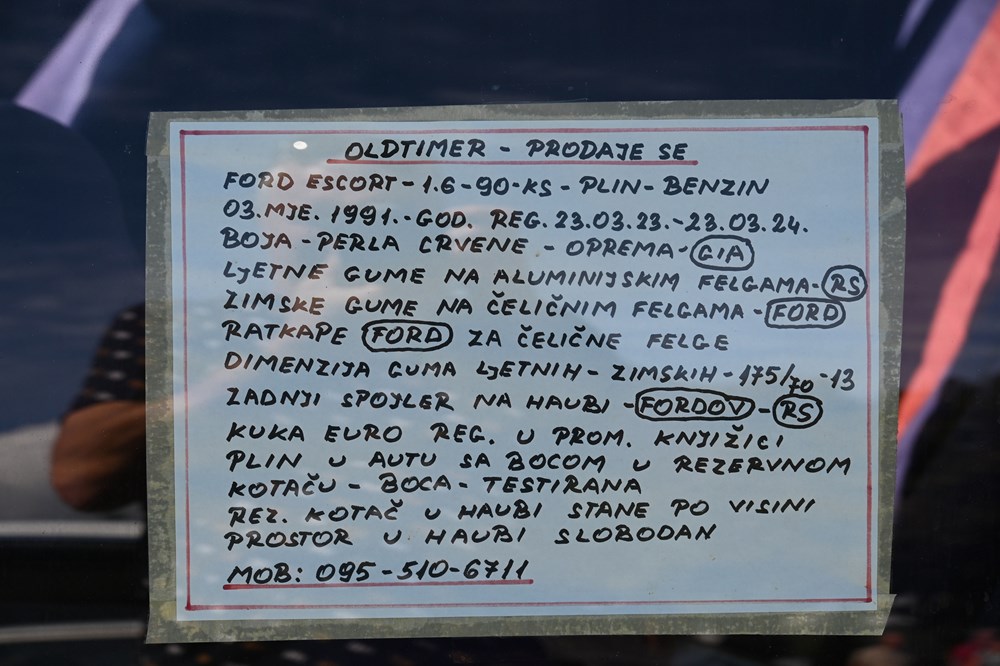 OLDTIMER - PRODAJE SE
FORD ESCORT - 1.6 - 90 - KS - PLIN - BENZIN
03.MJE. 1991. - GOD. REG. 23.03.23. - 23.03.24.
BOJA - PERLA CRVENE - OPREMA - GIA
LJETNE GUME NA ALUMINIJSKIM FELGAMA - RS
ZIMSKE GUME NA ČELIČNIM FELGAMA - FORD
RATKAPE FORD ZA ČELIČNE FELGE
DIMENZIJA GUMA LJETNIH - ZIMSKIH - 175/70 - 13
ZADNJI SPOJLER NA HAUBI - FORDOV - RS
KUKA EURO REG. U PROM. KNJIŽICI
PLIN U AUTU SA BOCOM U REZERVNOM
KOTAČU - BOCA - TESTIRANA
REZ. KOTAČ U HAUBI STANE PO VISINI
PROSTOR U HAUBI SLOBODAN
MOB: 095 - 510 - 6711